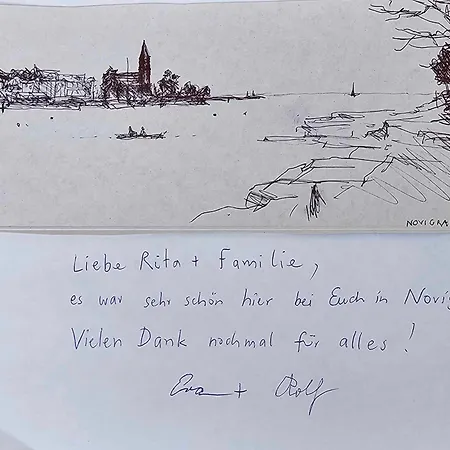 NOVIGRA
Liebe Rita + Familie,
es war sehr schön hier bei Euch in Novig
Vielen Dank nochmal für alles!
Eva + Rolf